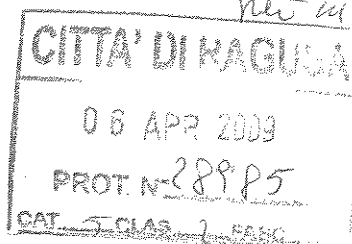 CITTA' DI RAGUSA
06 APR 2009
PROT. N. 28985
CAT. 5 CLAS. 2 FASC.